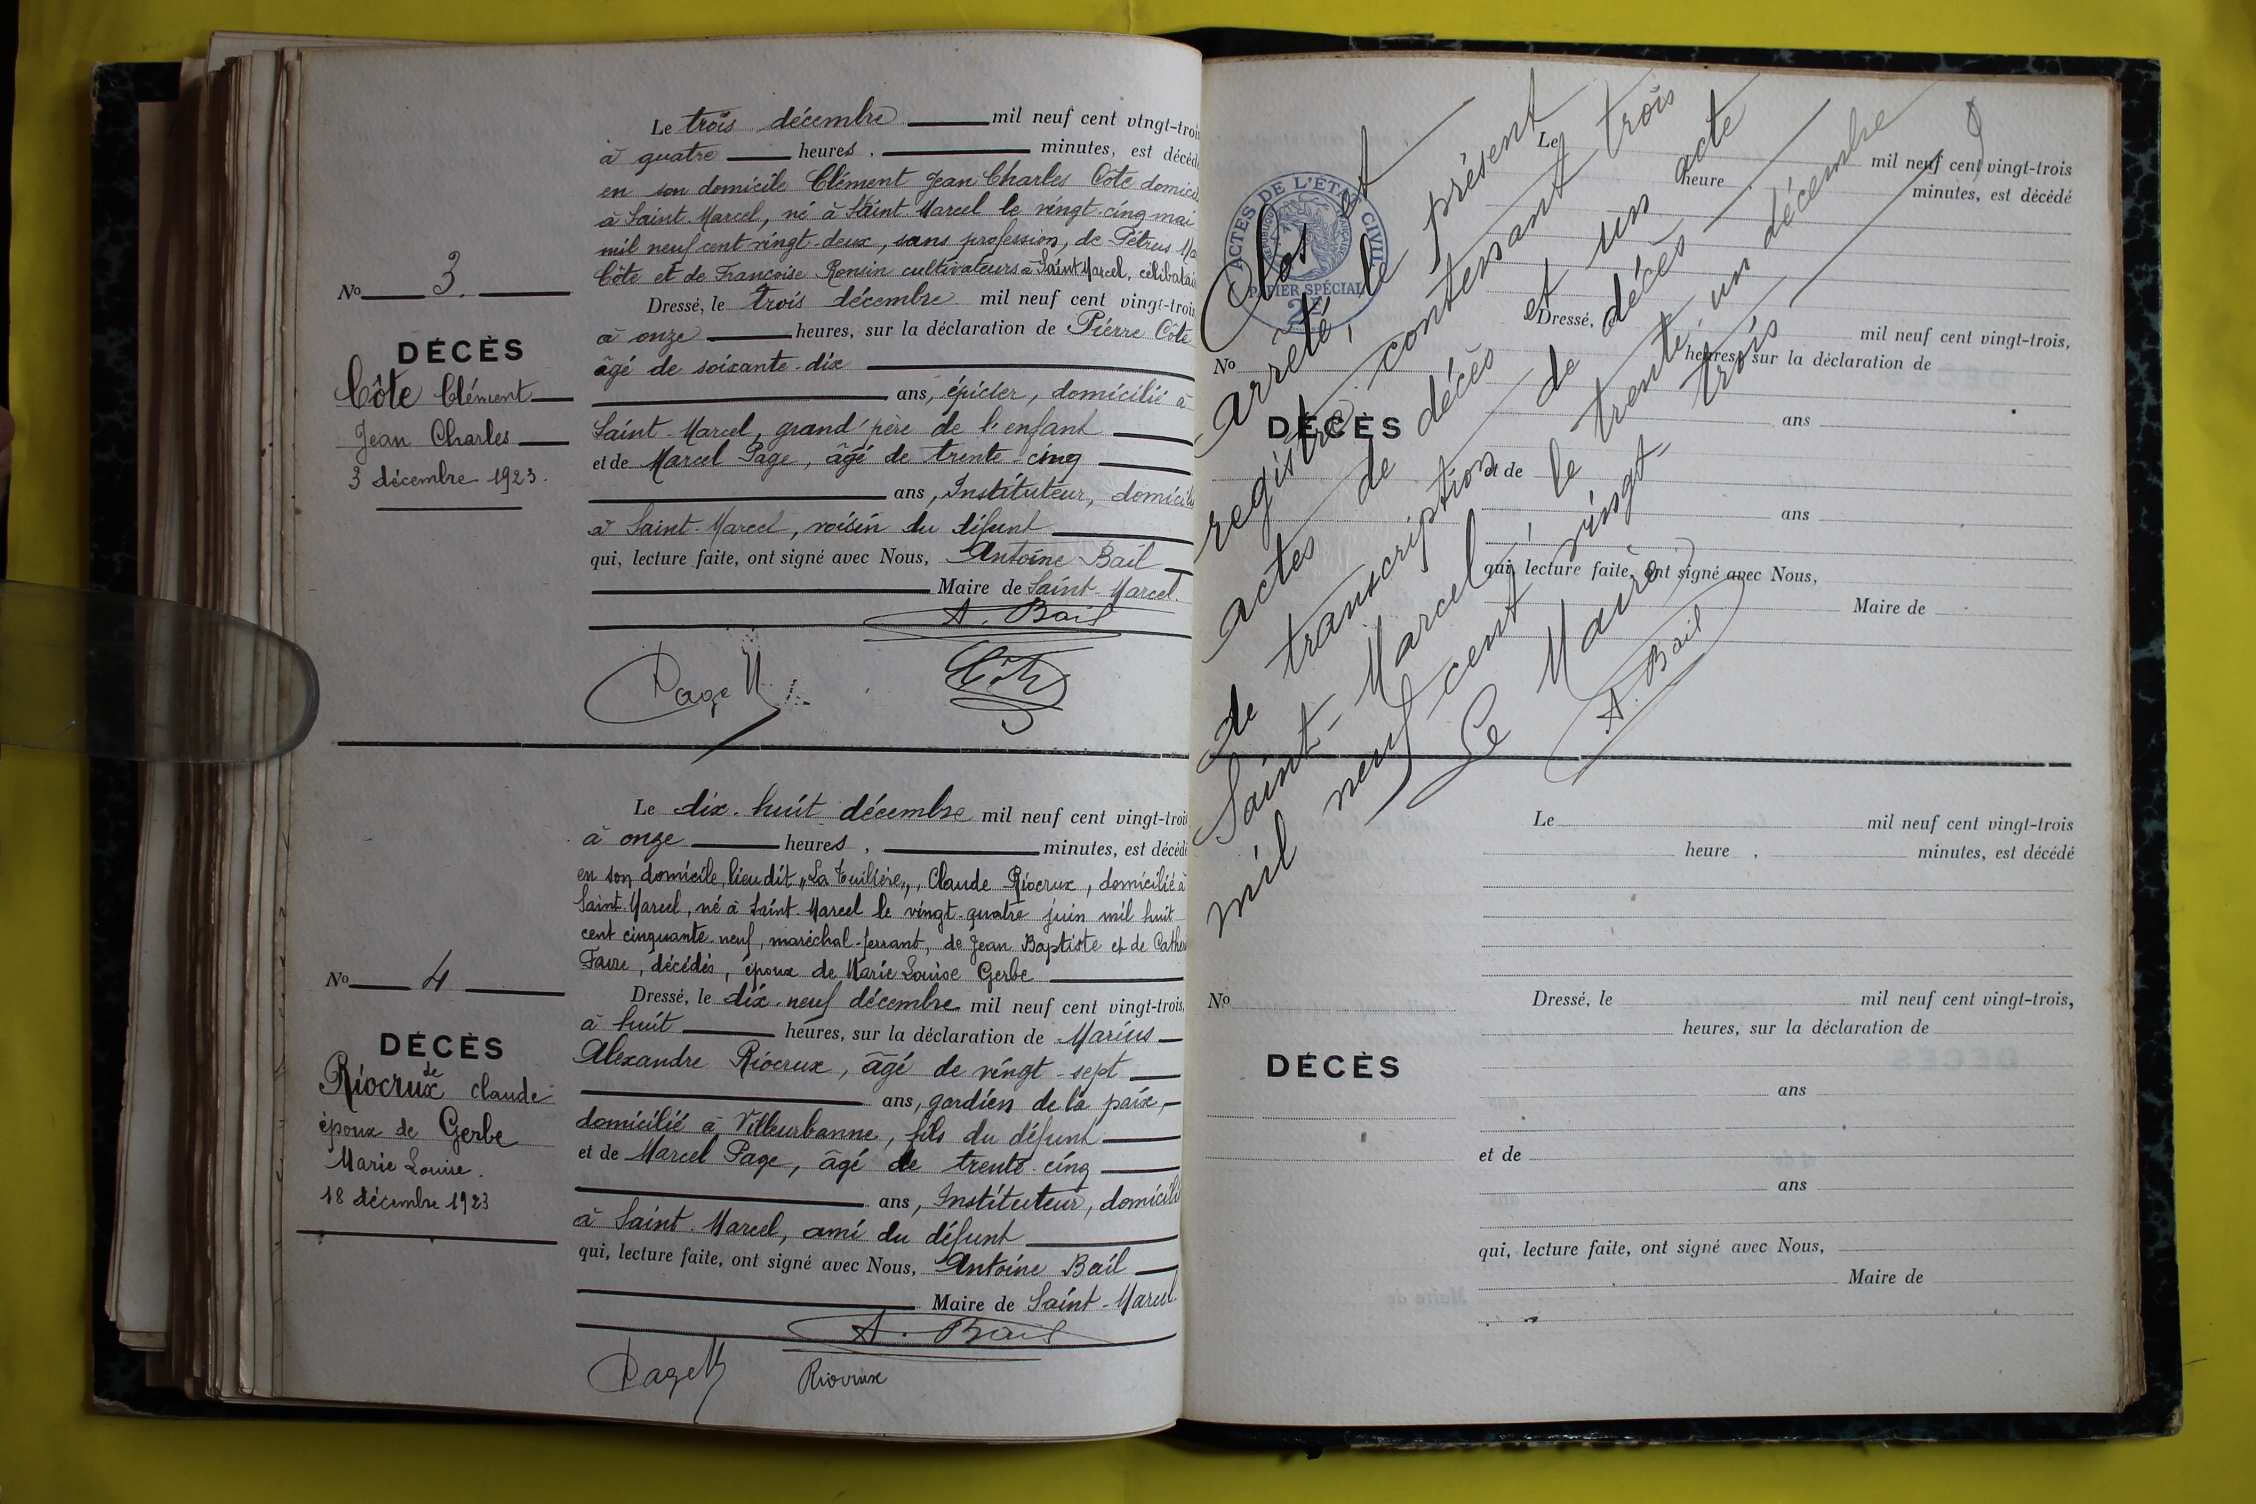 Le trois décembre mil neuf cent vingt-trois
à quatre heures, minutes, est décédé
en son domicile Clément Jean Charles Côte domicilié
à Saint-Marcel, né à Saint Marcel le vingt-cinq mai
mil neuf cent vingt-deux, sans profession, de Pétrus
Côte et de Françoise Ronzin cultivateurs à Saint Marcel, célibataire
No 3.
Dressé, le trois décembre mil neuf cent vingt-trois
à onze heures, sur la déclaration de Pierre Côte
âgé de soixante-dix
ans, épicier, domicilié à
Saint-Marcel, grand'père de l'enfant
et de Marcel Page, âgé de trente-cinq
ans, Instituteur, domicilié
à Saint-Marcel, voisin du défunt
qui, lecture faite, ont signé avec Nous, Antoine Bail
Maire de Saint-Marcel.
DÉCÈS
Côte Clément
Jean Charles
3 décembre 1923.
A. Bail
Page M
Côte
Le dix-huit décembre mil neuf cent vingt-trois
à onze heures, minutes, est décédé
en son domicile, lieu dit „La Tuilière„, Claude Riocrux, domicilié à
Saint-Marcel, né à Saint-Marcel le vingt-quatre juin mil huit
cent cinquante-neuf, maréchal-ferrant, de Jean Baptiste et de
Favre, décédés, époux de Marie Louise Gerbe
No 4
Dressé, le dix-neuf décembre mil neuf cent vingt-trois,
à huit heures, sur la déclaration de Marius
Alexandre Riocrux, âgé de vingt-sept
ans, gardien de la paix,
domicilié à Villeurbanne, fils du défunt
et de Marcel Page, âgé de trente-cinq
ans, Instituteur, domicilié
à Saint-Marcel, ami du défunt
qui, lecture faite, ont signé avec Nous, Antoine Bail
Maire de Saint-Marcel
DÉCÈS
de
Riocrux Claude
époux de Gerbe
Marie Louise.
18 décembre 1923
A. Bail
Page M
Riocrux
ACTES DE L'ÉTAT CIVIL
PAPIER SPÉCIAL
2F
Clos et
arrêté, le présent
registre contenant trois
actes de décès et un acte
de transcription de décès
Saint-Marcel, le trente-un décembre
mil neuf cent vingt-trois
Le Maire,
A. Bail
Le mil neuf cent vingt-trois
heure minutes, est décédé
No
Dressé, le mil neuf cent vingt-trois,
heures, sur la déclaration de
DÉCÈS
ans
et de
ans
qui, lecture faite, ont signé avec Nous,
Maire de
Le mil neuf cent vingt-trois
heure , minutes, est décédé
No
Dressé, le mil neuf cent vingt-trois,
heures, sur la déclaration de
DÉCÈS
ans
et de
ans
qui, lecture faite, ont signé avec Nous,
Maire de